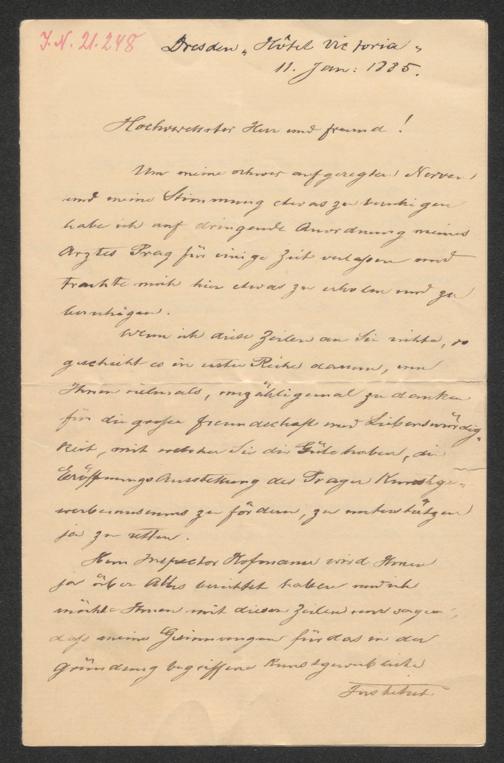 J.N. 21.248
Dresden „Hôtel Victoria"
11. Jan: 1885.
Hochverehrter Herr und Freund!
Um meine schwer aufgeregten Nerven
und meine Stimmung etwas zu beruhigen
habe ich auf dringende Anordnung meines
Arztes Prag für einige Zeit verlassen und
trachte mich hier etwas zu erholen und zu
beruhigen.
Wenn ich diese Zeilen an Sie richte, so
geschieht es in erster Reihe darum, um
Ihnen vielmals, unzähligemal zu danken
für die große Freundschaft und Liebenswürdig-
keit, mit welcher Sie die Güte haben, die
Eröffnungs Ausstellung des Prager Kunstge-
werbemuseums zu fördern, zu unterstützen
ja zu retten.
Herr Inspector Hofmann wird Ihnen
ja über Alles berichtet haben und ich
möchte Ihnen mit diesen Zeilen nur sagen,
daß meine Gesinnungen für das in der
Gründung begriffene kunstgewerbliche
Institut